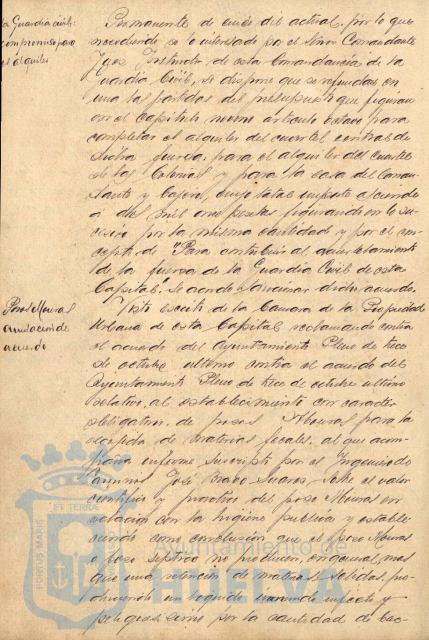 la Guardia civil:
compromiso para
alquiler
Permanente de once del actual, por lo que
accediendo a lo interesado por el Señor Comandante
Jefe Instructor de esta Comandancia de la
Guardia Civil, se dispone que se refundan en
una las partidas del presupuesto que figuran
en el capítulo noveno artículo octavo para
completar el alquiler del cuartel central de
dicha fuerza; para el alquiler del cuartel
de las Colonias y para la casa del Coman-
dante y Cajero, cuyo total importe asciende
a diez mil once pesetas figurando en lo su-
cesivo por la misma cantidad y por el con-
cepto de "Para contribuir al acuartelamiento
de la fuerza de la Guardia Civil de esta
Capital." Se acordó sancionar dicho acuerdo.
Pozos Mouras
anulación de
acuerdo
Visto escrito de la Cámara de la Propiedad
Urbana de esta Capital reclamando contra
el acuerdo del Ayuntamiento Pleno de trece
de octubre último contra el acuerdo del
Ayuntamiento Pleno de trece de octubre último
relativo, al establecimiento con caracter
obligatorio de pozos Mouras para la
recogida de materias fecales, al que acom-
paña informe suscripto por el Ingeniero de
Caminos José Bravo Suarez sobre el valor
científico y práctico del pozo Mouras en
relación con la higiene pública y estable-
ciendo como conclusión que el pozo Mouras
o pozo séptico no producen, en general, mas
que una retención de materias solidas, pro-
duciendo un líquido
peligrosísimo por la cantidad de bac-
ET TERRA
PORTUS MARIS
Ayuntamiento de
HUELVA